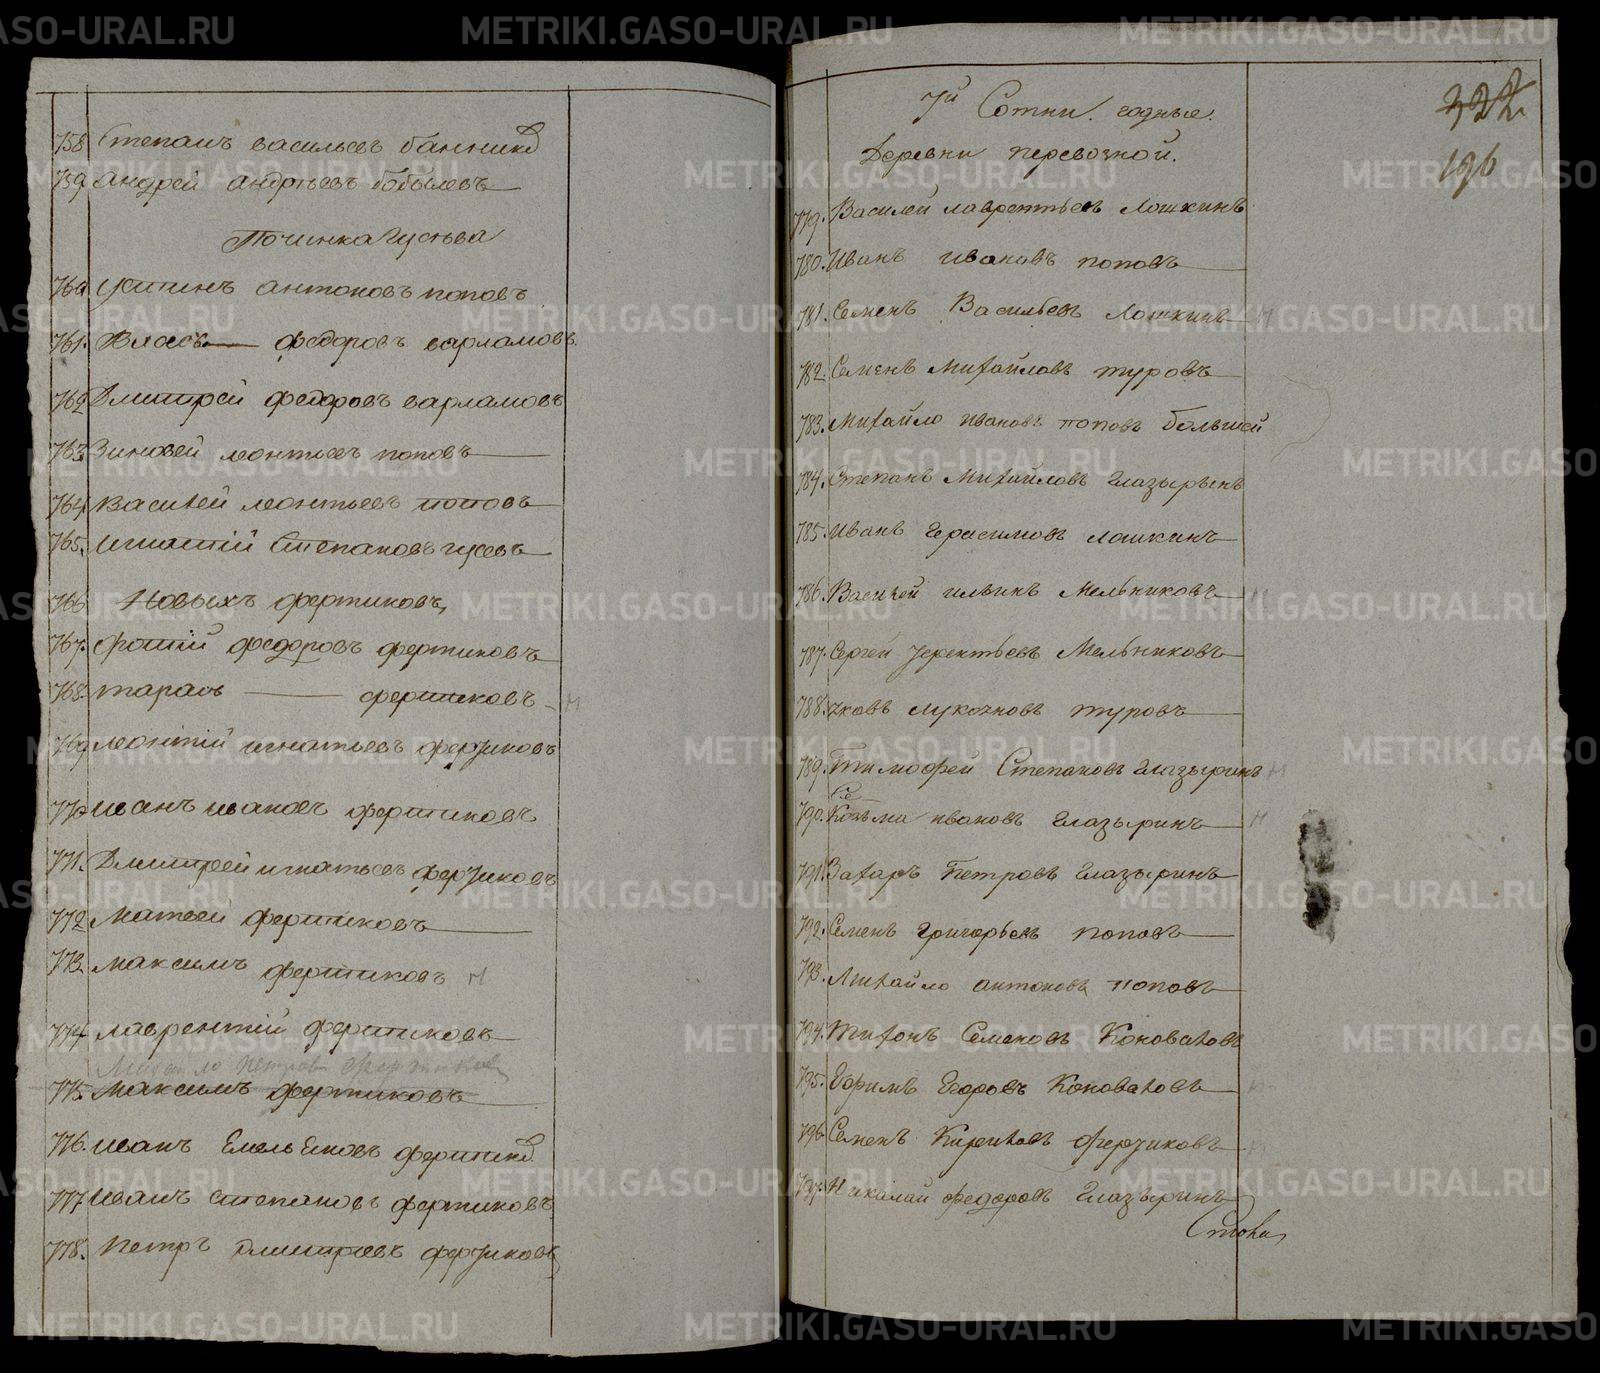 758 Степанъ васильевъ банникъ
759 андрей андрѣевъ бобылевъ
Починка гусева
760 устинъ антоновъ поповъ
761. Власъ федоровъ варламовъ
762 Дмитрей федоровъ варламовъ
763 Зиновей леонтьевъ поповъ
764 Василей леонтьевъ поповъ
765. игнатій Степановъ гусевъ
766 Новыхъ фертиковъ
767. федоровъ фертиковъ
768. тарасъ фертиковъ н
769 леонтій игнатьевъ фертиковъ
770 иванъ ивановъ фертиковъ
771. Дмитрей игнатьевъ фертиковъ
772 матвей фертиковъ
773 максимъ фертиковъ н
774 лаврентій фертиковъ
Михайло петровъ фертиковъ
775. максимъ фертиковъ
776. иванъ Емельяновъ фертик
777 иванъ степановъ фертиковъ
778. петръ дмитріевъ фертиковъ
7й Сотни годные.
322
Деревни перевозной.
196
779. Василей лаврентьевъ Лошкинъ
780. Иванъ ивановъ поповъ
781. Семенъ Васильевъ Лошкинъ н
782. Семенъ Михайловъ туровъ
783. Михайло Ивановъ поповъ большей
784. Степанъ Михайловъ глазыринъ
785. Иванъ Герасимовъ лошкинъ
786. Василей ильинъ Мельниковъ н
787. Сергей терентьевъ Мельниковъ
788. туровъ
789. Тимофей Степановъ глазыринъ н
790. Козьма ивановъ глазыринъ н
791. Захаръ Петровъ глазыринъ
792. Семенъ григорьевъ поповъ
793. Михайло антоновъ поповъ
794. Тихонъ Семеновъ Коноваловъ
795. Ефимъ Егоровъ Коноваловъ н
796 Семенъ Кириловъ фертиковъ н
797. Николай федоровъ глазыринъ